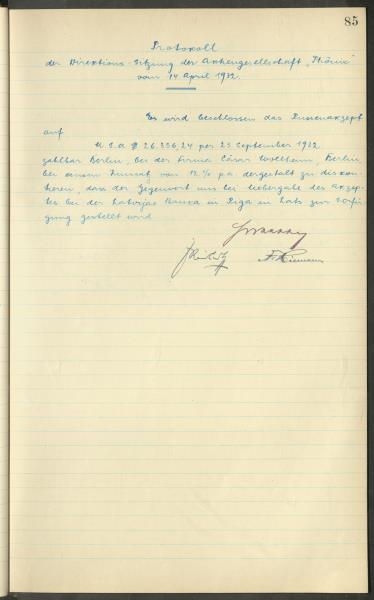 85
Protokoll
der Direktions-Sitzung der Aktiengesellschaft „Phönix"
vom 14 April 1932.
Es wird beschlossen das
auf
U.S.A. $ 26.256,24 per 25 September 1932
zahlbar Berlin, bei der Firma Cäsar Wollheim, Berlin
bei einem Zinssatz von 12 % p.a. dergestalt zu diskon-
tieren, dass der Gegenwert uns bei Uebergabe des Akzep-
tes bei der Latvijas Banka in Riga in Lats zur Verfü-
gung gestellt wird